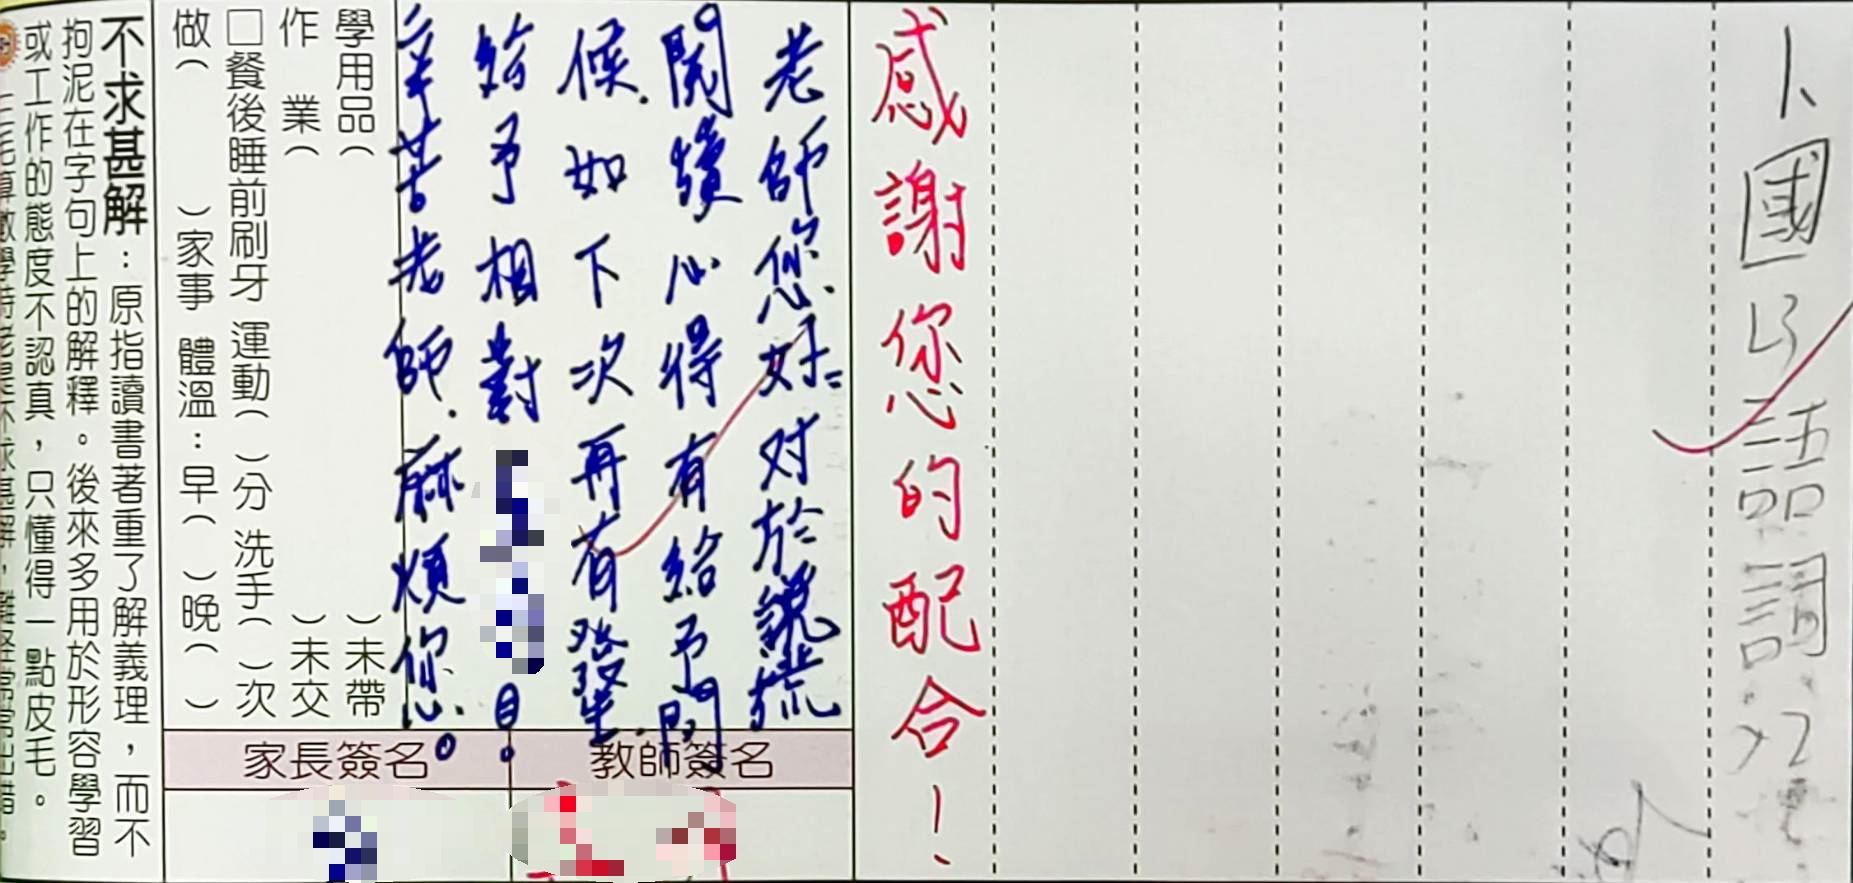 卜國ㄋ語詞
感謝您的配合！
老師您好=对於說謊
閱讀心得有給予閱
候.如下次再有發生.
給予相對
目。
辛苦老師.麻煩您。
學用品（　）未帶
作業（　）未交
□餐後睡前刷牙 運動（　）分 洗手（　）次
做（　）家事 體溫：早（　）晚（　）
教師簽名
家長簽名
不求甚解：原指讀書著重了解義理，而不
拘泥在字句上的解釋。後來多用於形容學習
或工作的態度不認真，只懂得一點皮毛。